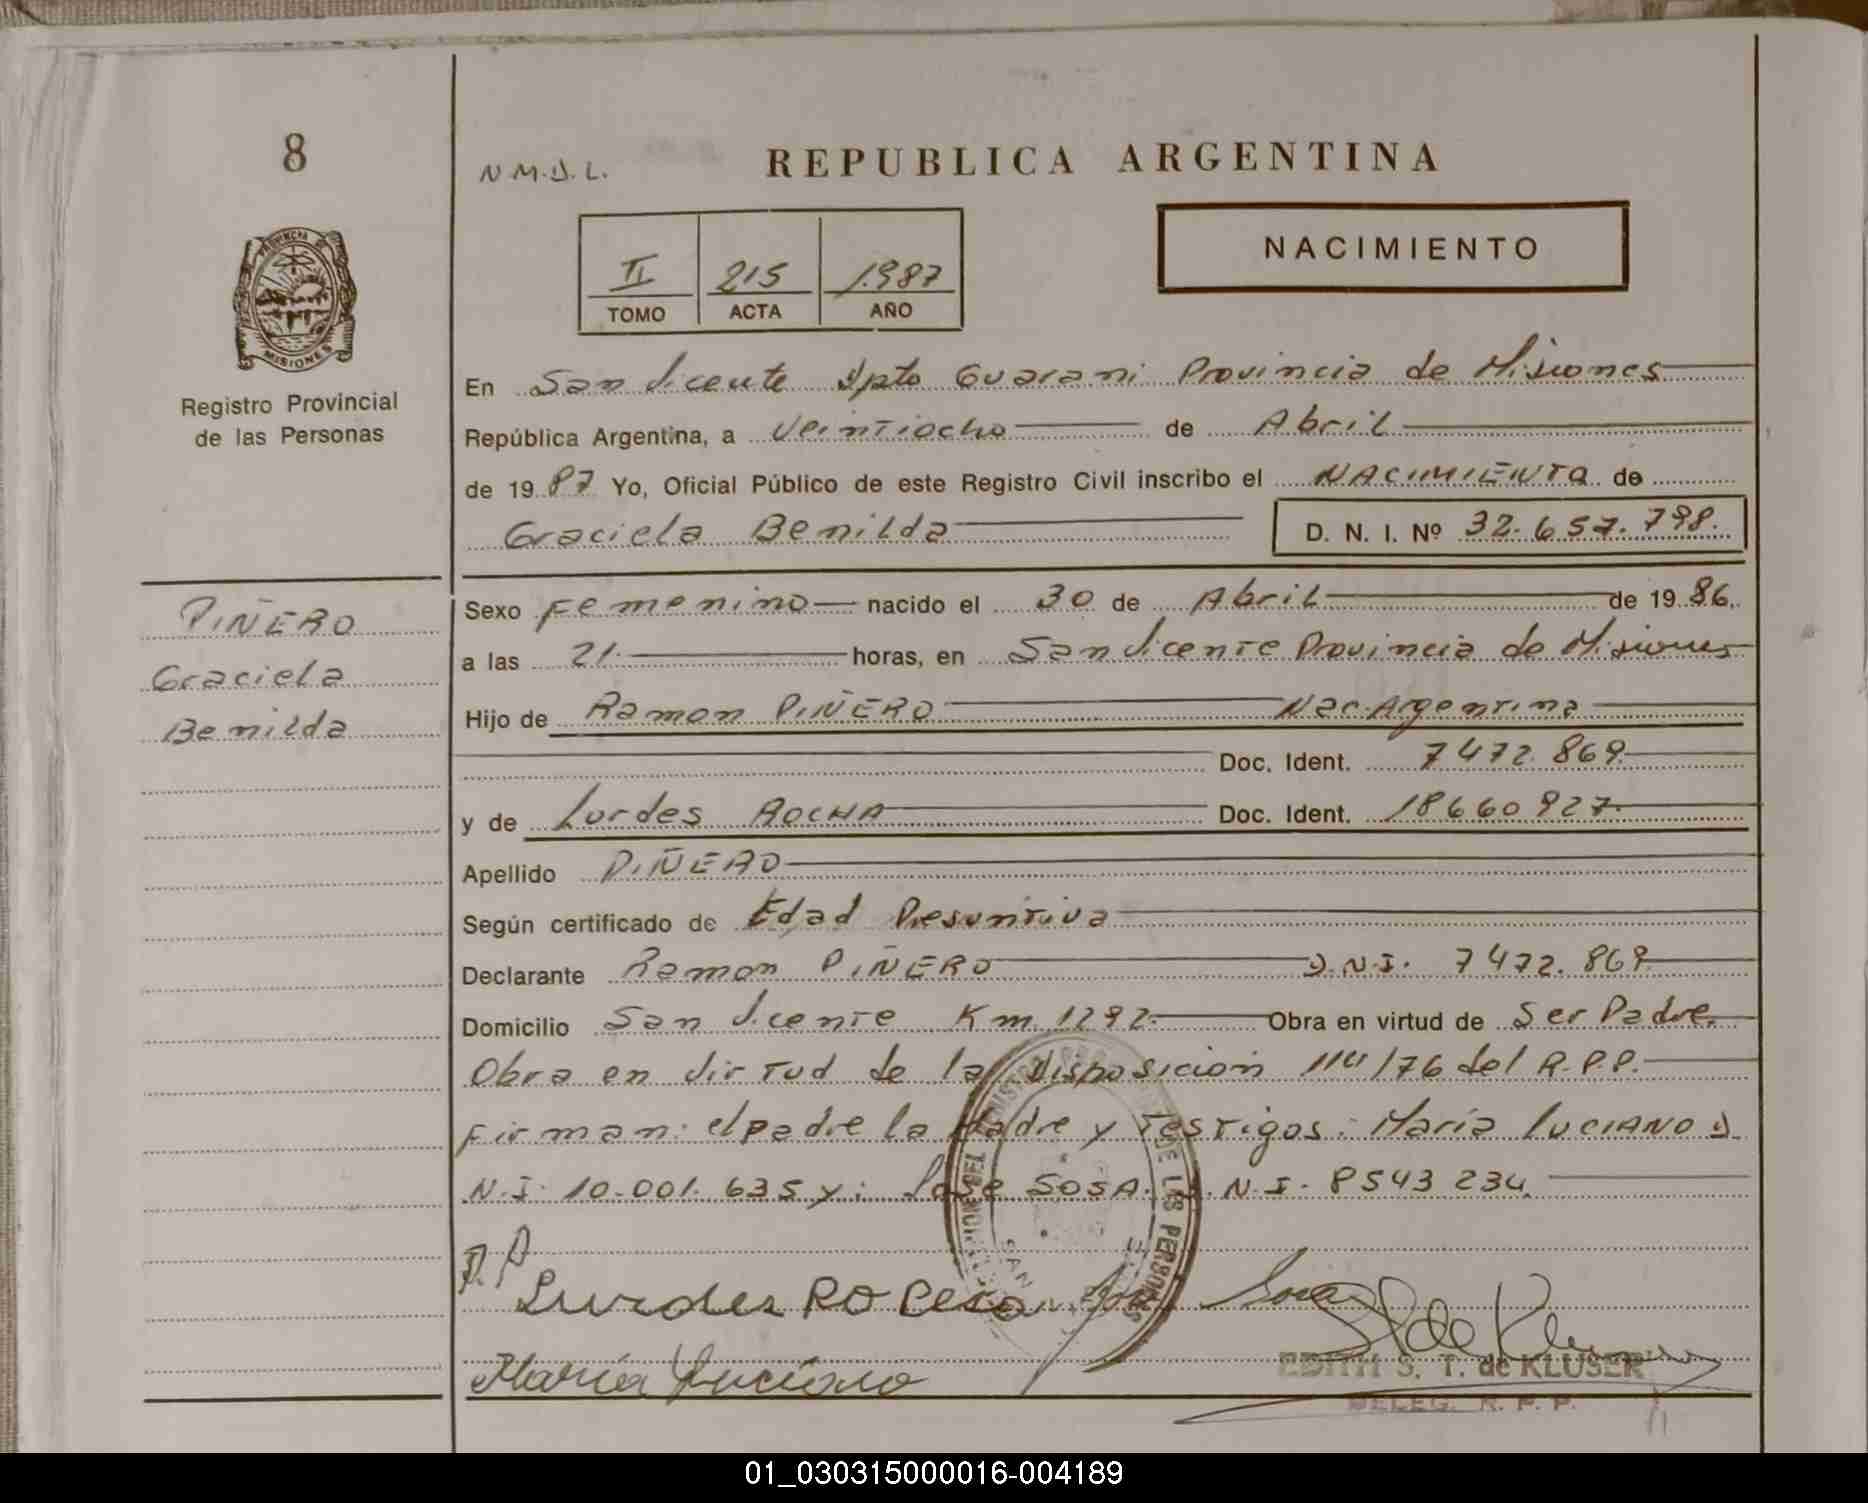 8
N.M.D.L.
REPUBLICA ARGENTINA
PROVINCIA DE
MISIONES
Registro Provincial
de las Personas
II 215 1.987
TOMO ACTA AÑO
NACIMIENTO
En San Vicente Dpto Guarani Provincia de Misiones
República Argentina, a Veintiocho de Abril
de 19 87 Yo, Oficial Público de este Registro Civil inscribo el NACIMIENTO de
Graciela Benilda D. N. I. Nº 32.657.798.
PIÑERO
Graciela
Benilda
Sexo Femenino nacido el 30 de Abril de 19 86.
a las 21. horas, en San Vicente Provincia de Misiones
Hijo de Ramon PIÑERO Nac. Argentina
Doc. Ident. 7472.869.
y de Lurdes ROCHA Doc. Ident. 18660927.
Apellido PIÑERO
Según certificado de Edad Presuntiva
Declarante Ramon PIÑERO D.N.I. 7472.869.
Domicilio San Vicente Km 1292. Obra en virtud de Ser Padre.
Obra en Virtud de la Disposicion 114/76 del R.P.P.
Firman: el padre la Madre y Testigos: María LUCIANO D.
N.I. 10.001.635 y: Jose SOSA. D.N.I. 8543234.
DE LAS PERSONAS
SAN
Lurdes
Sosa
María Luciano
EDITH S. T. de KLUSER
DELEG. R. P. P.
01_030315000016-004189